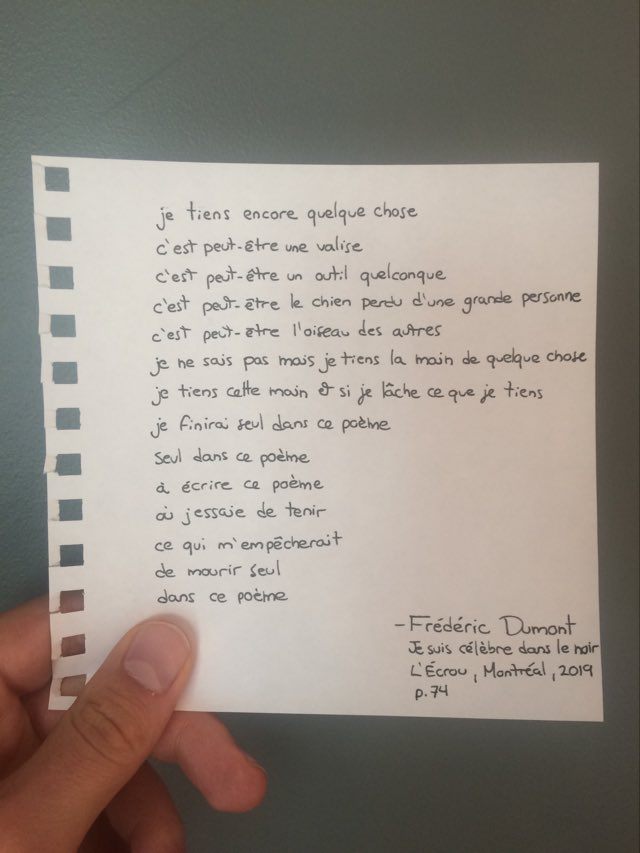 je tiens encore quelque chose
c'est peut-être une valise
c'est peut-être un outil quelconque
c'est peut-être le chien perdu d'une grande personne
c'est peut-être l'oiseau des autres
je ne sais pas mais je tiens la main de quelque chose
je tiens cette main & si je lâche ce que je tiens
je finirai seul dans ce poème
seul dans ce poème
à écrire ce poème
où j'essaie de tenir
ce qui m'empêcherait
de mourir seul
dans ce poème
- Frédéric Dumont
Je suis célèbre dans le noir
L'Écrou, Montréal, 2019
p.74